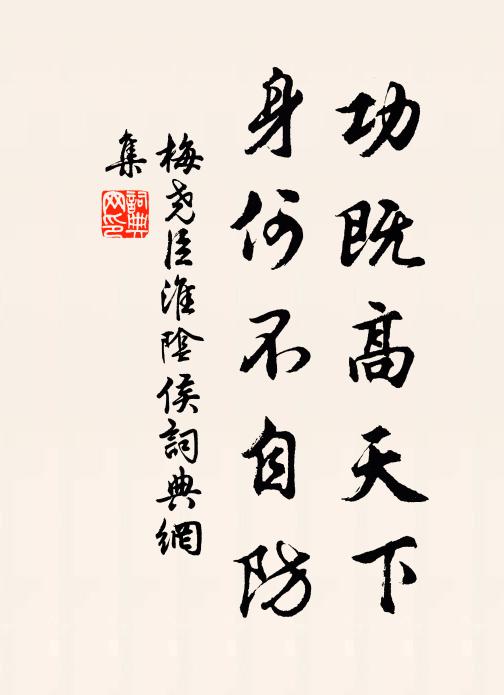 功既高天下
身何不自防
梅尧臣淮陰侯詞典網
集
詞典網印